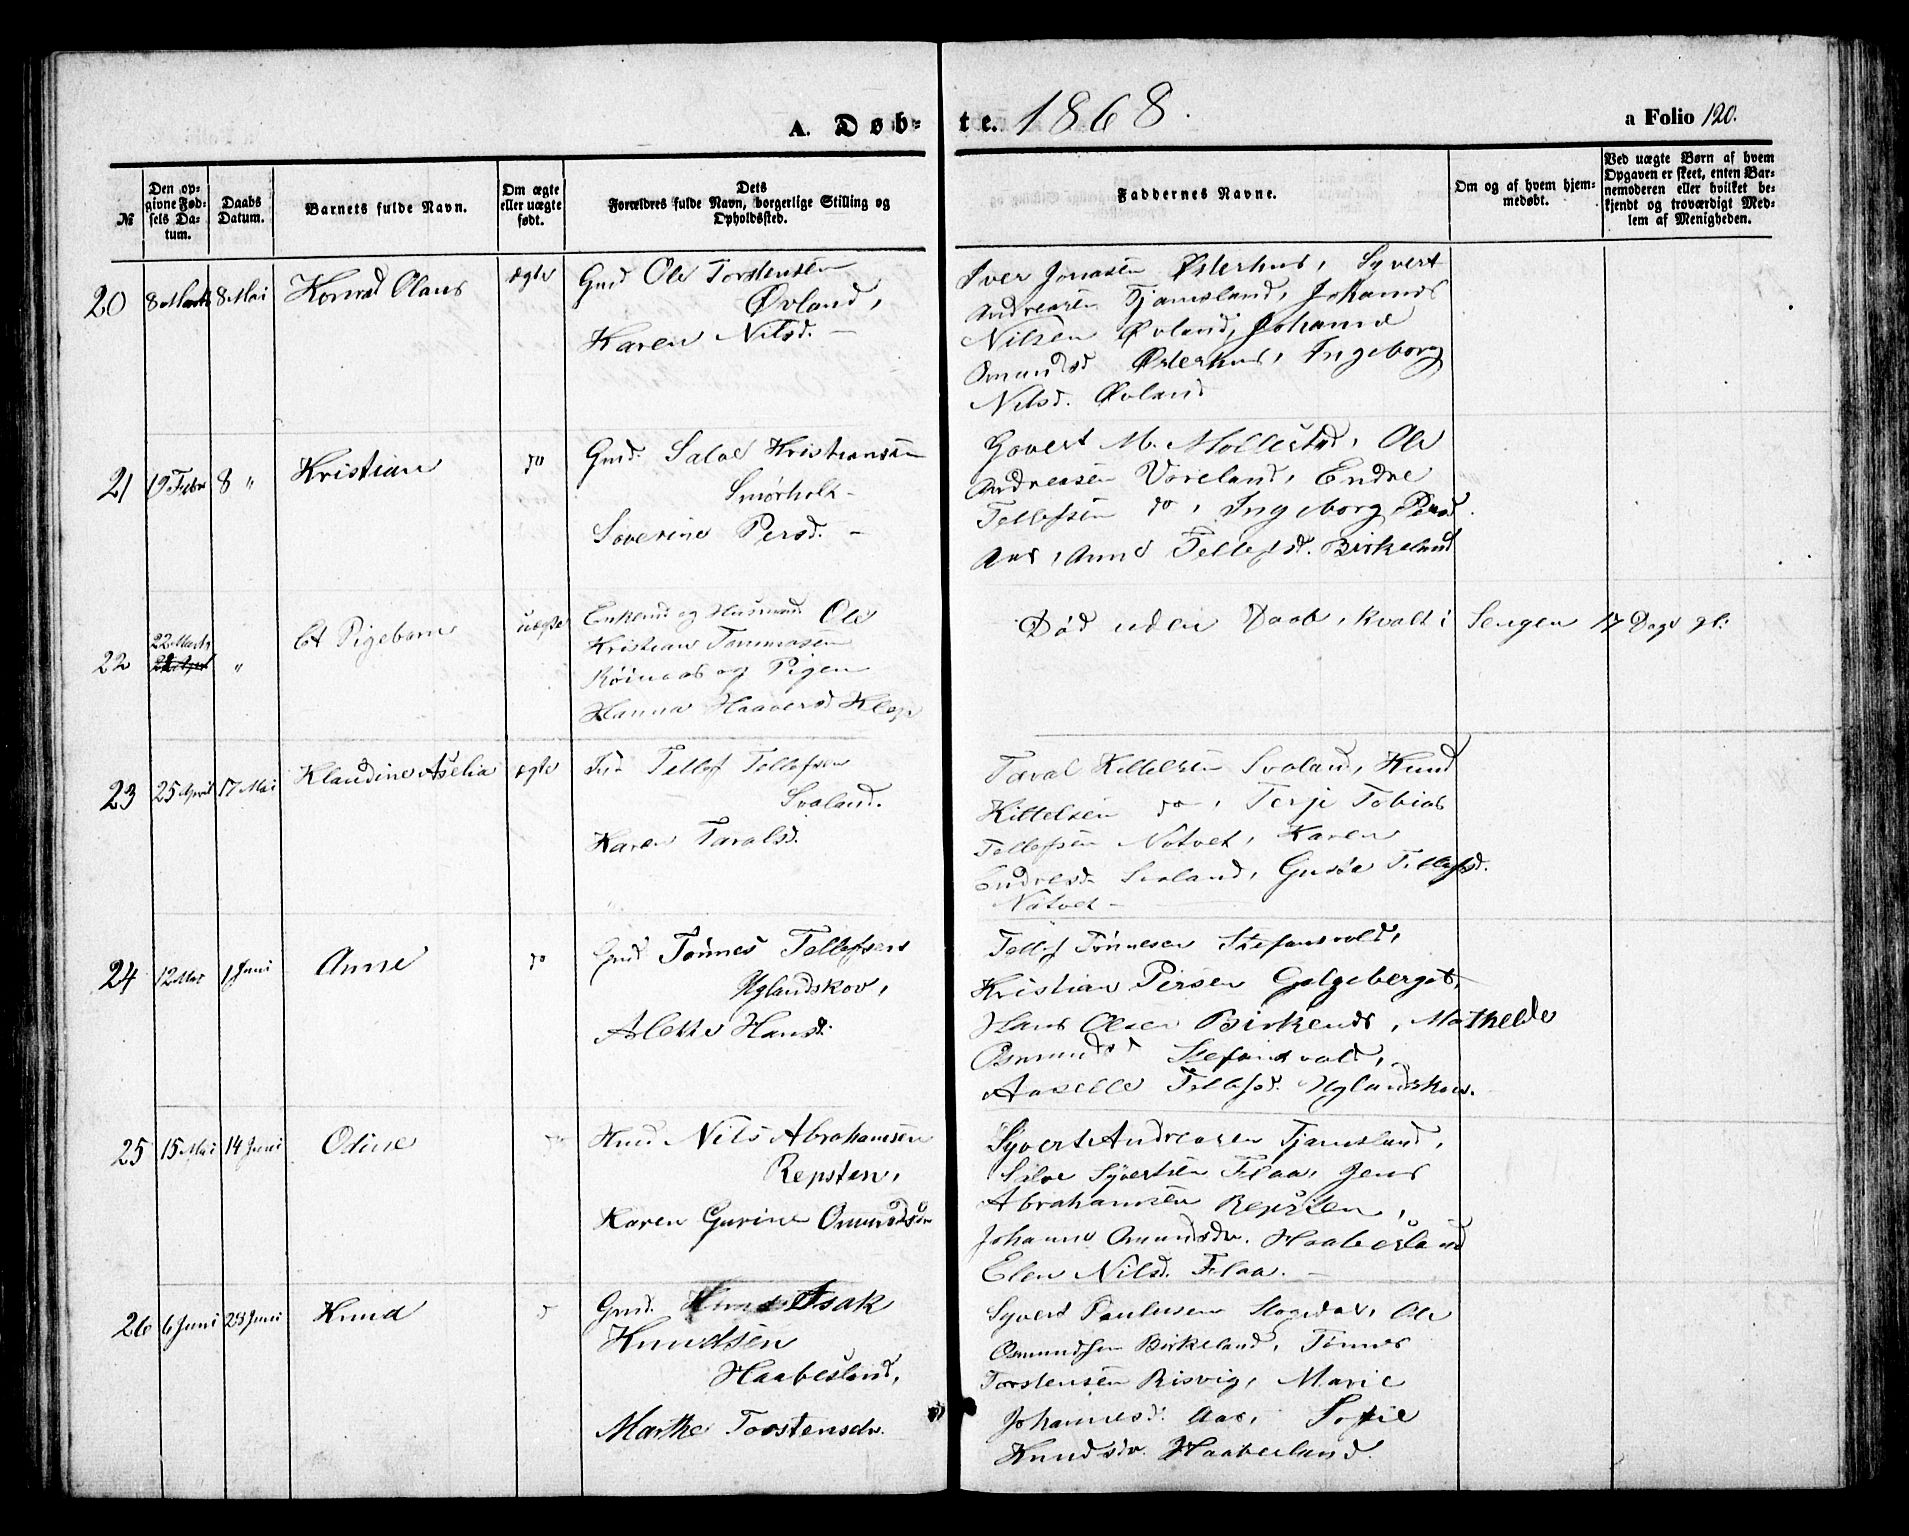 A. Døb-
te. 1868.
a Folio 120.
№
Den op-
givne Fød-
sels Da-
tum.
Daabs
Datum.
Barnets fulde Navn.
Om ægte
eller uægte
født.
Dets
Forældres fulde Navn, borgerlige Stilling og
Opholdssted.
Faddernes Navne.
Om og af hvem hjem-
medøbt.
Ved uægte Børn af hvem
Opgaven er skeet, enten Bar-
nemoderen eller hvilket be-
kjendt og troværdigt Med-
lem af Menigheden.
20 8 Marts 8 Mai Konrad Olaus ægte
Gmd Ole Torstensen
Øvland,
Karen Nilsd. -
Iver Jonasen Østerhus, Syvert
Andreasen Tjamsland, Johannes
Nilsen Øvland, Johanne
Omundsd Østerhus, Ingeborg
Nilsd. Øvland
21 19 Febr 8 " Kristian do
Gmd. Salve Kristiansen
Smørholt -
Soverine Persd. -
Govert M. Mollestad, Ole
Andreasen Vöreland, Endre
Tellefsen do, Ingeborg Persd.
Aas, Anne Tellefsd. Birkeland
22 22 Marts " Et Pigebarn uægte
Enkemd og Husmand Ole
Kristian Tommasen
Röinaas og Pigen
Hanna Haaversd Klep
Död uden Daab, kvalt i Sengen 17 Dage gl:
23 25 April 17 Mai Klaudine Aselia ægte
Tellef Tellefsen
Svaland.
Karen Taralsd.
Taral Kittelsen Svaland, Knud
Kittelsen do, Terje Tobias
Tellefsen Natvet, Karen
Endresd Svaland, Tellefsd.
Natvet -
24 12 Mai 1 Juni Anne do
Gmd Tønnes Tellefsen
Uglandskov,
Alette Hansd.
Tellef Tönnesen Stefansvold,
Kristian Persen Galgeberget,
Hans Olsen Birkenes, Mathelde
Osmundsd Stefansvold,
Aaselle Tellefsd. Uglandskov.
25 15 Mai 14 Juni Odine do
Husmd Nils Abrahamsen
Repsten,
Karen Gurine Omundsdr
Syvert Andreasen Tjamsland,
Salve Syvertsen Flaa, Jens
Abrahamsen Repsten,
Johanne Omundsdr. Haabesland
Elen Nilsd. Flaa. -
26 6 Juni 28 Juni Knud
Gmd. Isak
Knudsen
Haabesland,
Marthe Torstensdr.
Syvert Paulusen, Ole
Osmundsen Birkeland, Tönnes
Torstensen Risvig, Marie
Johannesd. Aas, Sofie
Knudsdr. Haabesland.